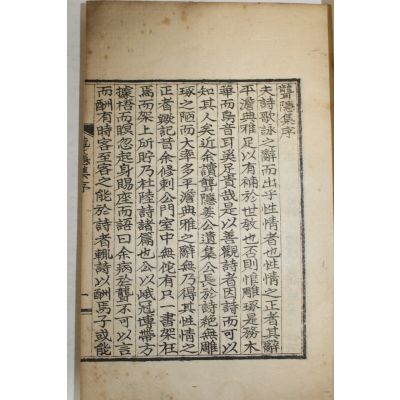 聾隱集序
夫詩歌詠之辭而出乎性情者也性情之正者其辭
平澹典雅足以有補於世敎也否則惟雕琢是務木
華而鳥音耳奚足貴哉是以善觀詩者因詩而可以
知其人矣近余讀聾隱姜公遺集公長於詩絶無雕
琢之陋而大率多平澹典雅之辭無乃得其性情之
正者歟記昔余修刺公門室中無佗有只一書架在
焉而架上所貯乃杜陵詩諸篇也公以峨冠博帶方
據梧而瞑忽起身賜座而語曰余病於聾不可以言
而酬有時客至客之能於詩者輒詩以酬焉子或能
隱集序
一